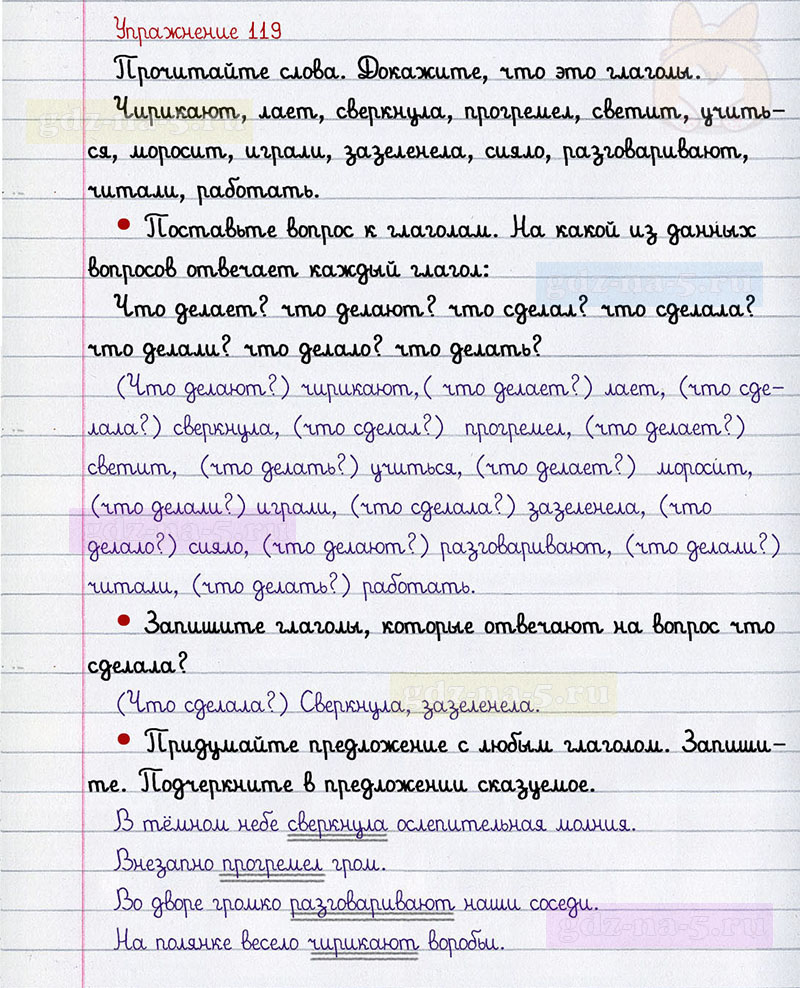 Упражнение 119
Прочитайте слова. Докажите, что это глаголы.
Чирикают, лает, сверкнула, прогремел, светит, учить-
ся, моросит, играли, зазеленела, сияло, разговаривают,
читали, работать.
• Поставьте вопрос к глаголам. На какой из данных
вопросов отвечает каждый глагол:
Что делает? что делают? что сделал? что сделала?
что делали? что делало? что делать?
(Что делают?) чирикают,( что делает?) лает, (что сде-
лала?) сверкнула, (что сделал?) прогремел, (что делает?)
светит, (что делать?) учиться, (что делает?) моросит,
(что делали?) играли, (что сделала?) зазеленела, (что
делало?) сияло, (что делают?) разговаривают, (что делали?)
читали, (что делать?) работать.
• Запишите глаголы, которые отвечают на вопрос что
сделала?
(Что сделала?) Сверкнула, зазеленела.
• Придумайте предложение с любым глаголом. Запиши-
те. Подчеркните в предложении сказуемое.
В тёмном небе сверкнула ослепительная молния.
Внезапно прогремел гром.
Во дворе громко разговаривают наши соседи.
На полянке весело чирикают воробьи.
gdz-na-5.ru
gdz-na-5.ru
gdz-na-5.ru
gdz-na-5.ru
gdz-na-5.ru